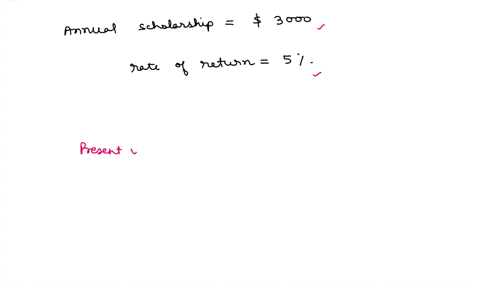 Annual scholarship = $ 3000
rate of return = 5%.
Present